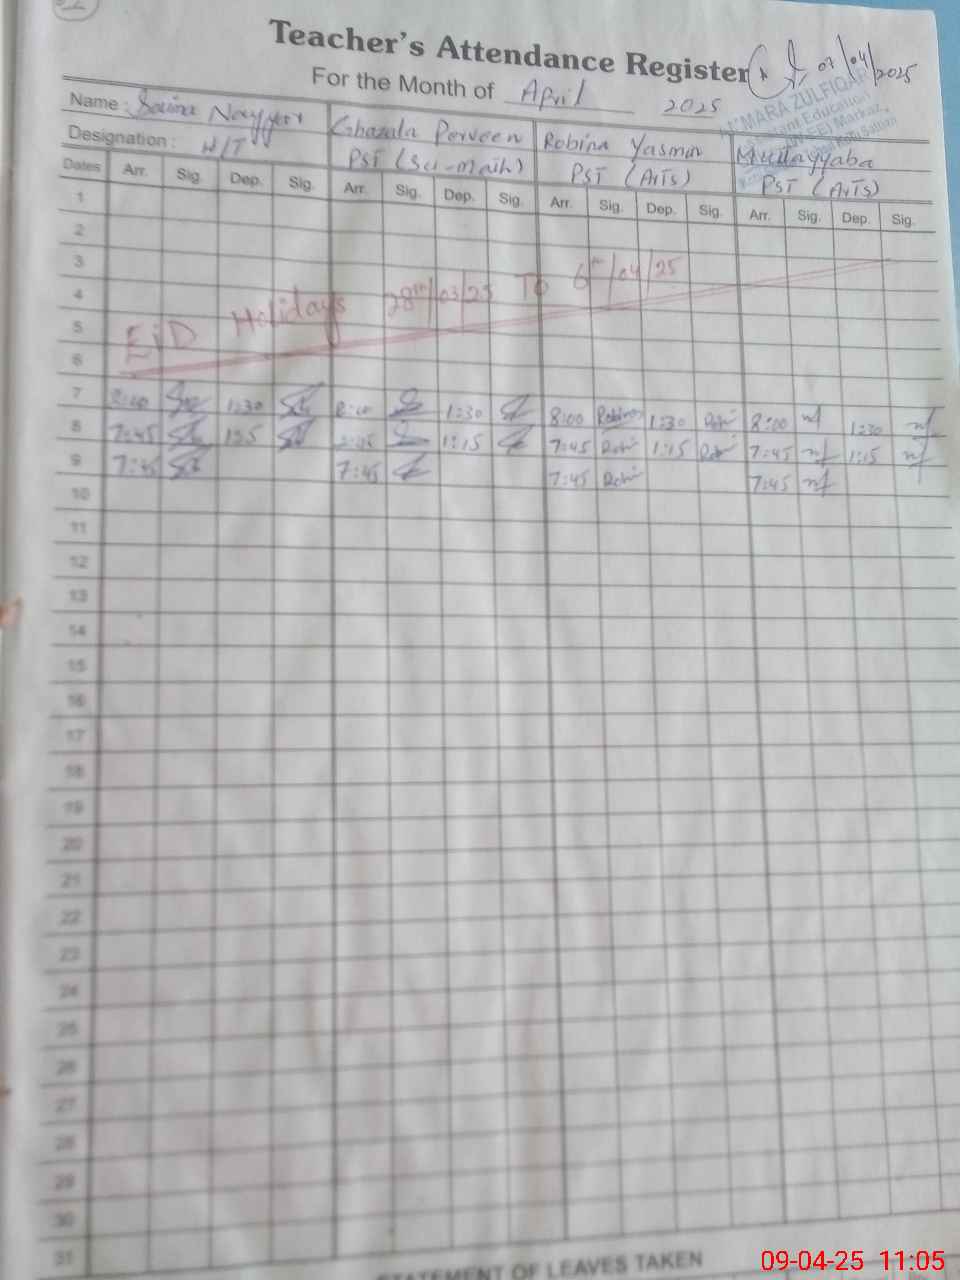 Teacher's Attendance Register
07/04/2025
For the Month of April 2025
Name : Nayyer Ghazala Perveen Robina Yasmin
Designation : H/T PST (Sci-math) PST (Arts) PST (Arts)
UMARA ZULFIQAR
Education
Markaz,
Dates Arr. Sig. Dep. Sig. Arr. Sig. Dep. Sig. Arr. Sig. Dep. Sig. Arr. Sig. Dep. Sig.
1
2
3
4
5
6
EiD Holidays 28th/03/25 To 6th/04/25
7 8:00 1:30 8:00 1:30 8:00 Robina 1:30 Robi 8:00 1:30
8 7:45 7:45 1:15 7:45 Robi 1:15 Robi 7:45 1:15
9 7:45 7:45 7:45 Robi 7:45
10
11
12
13
14
15
16
17
18
19
20
21
22
23
24
25
26
27
28
29
30
31
STATEMENT OF LEAVES TAKEN
09-04-25 11:05